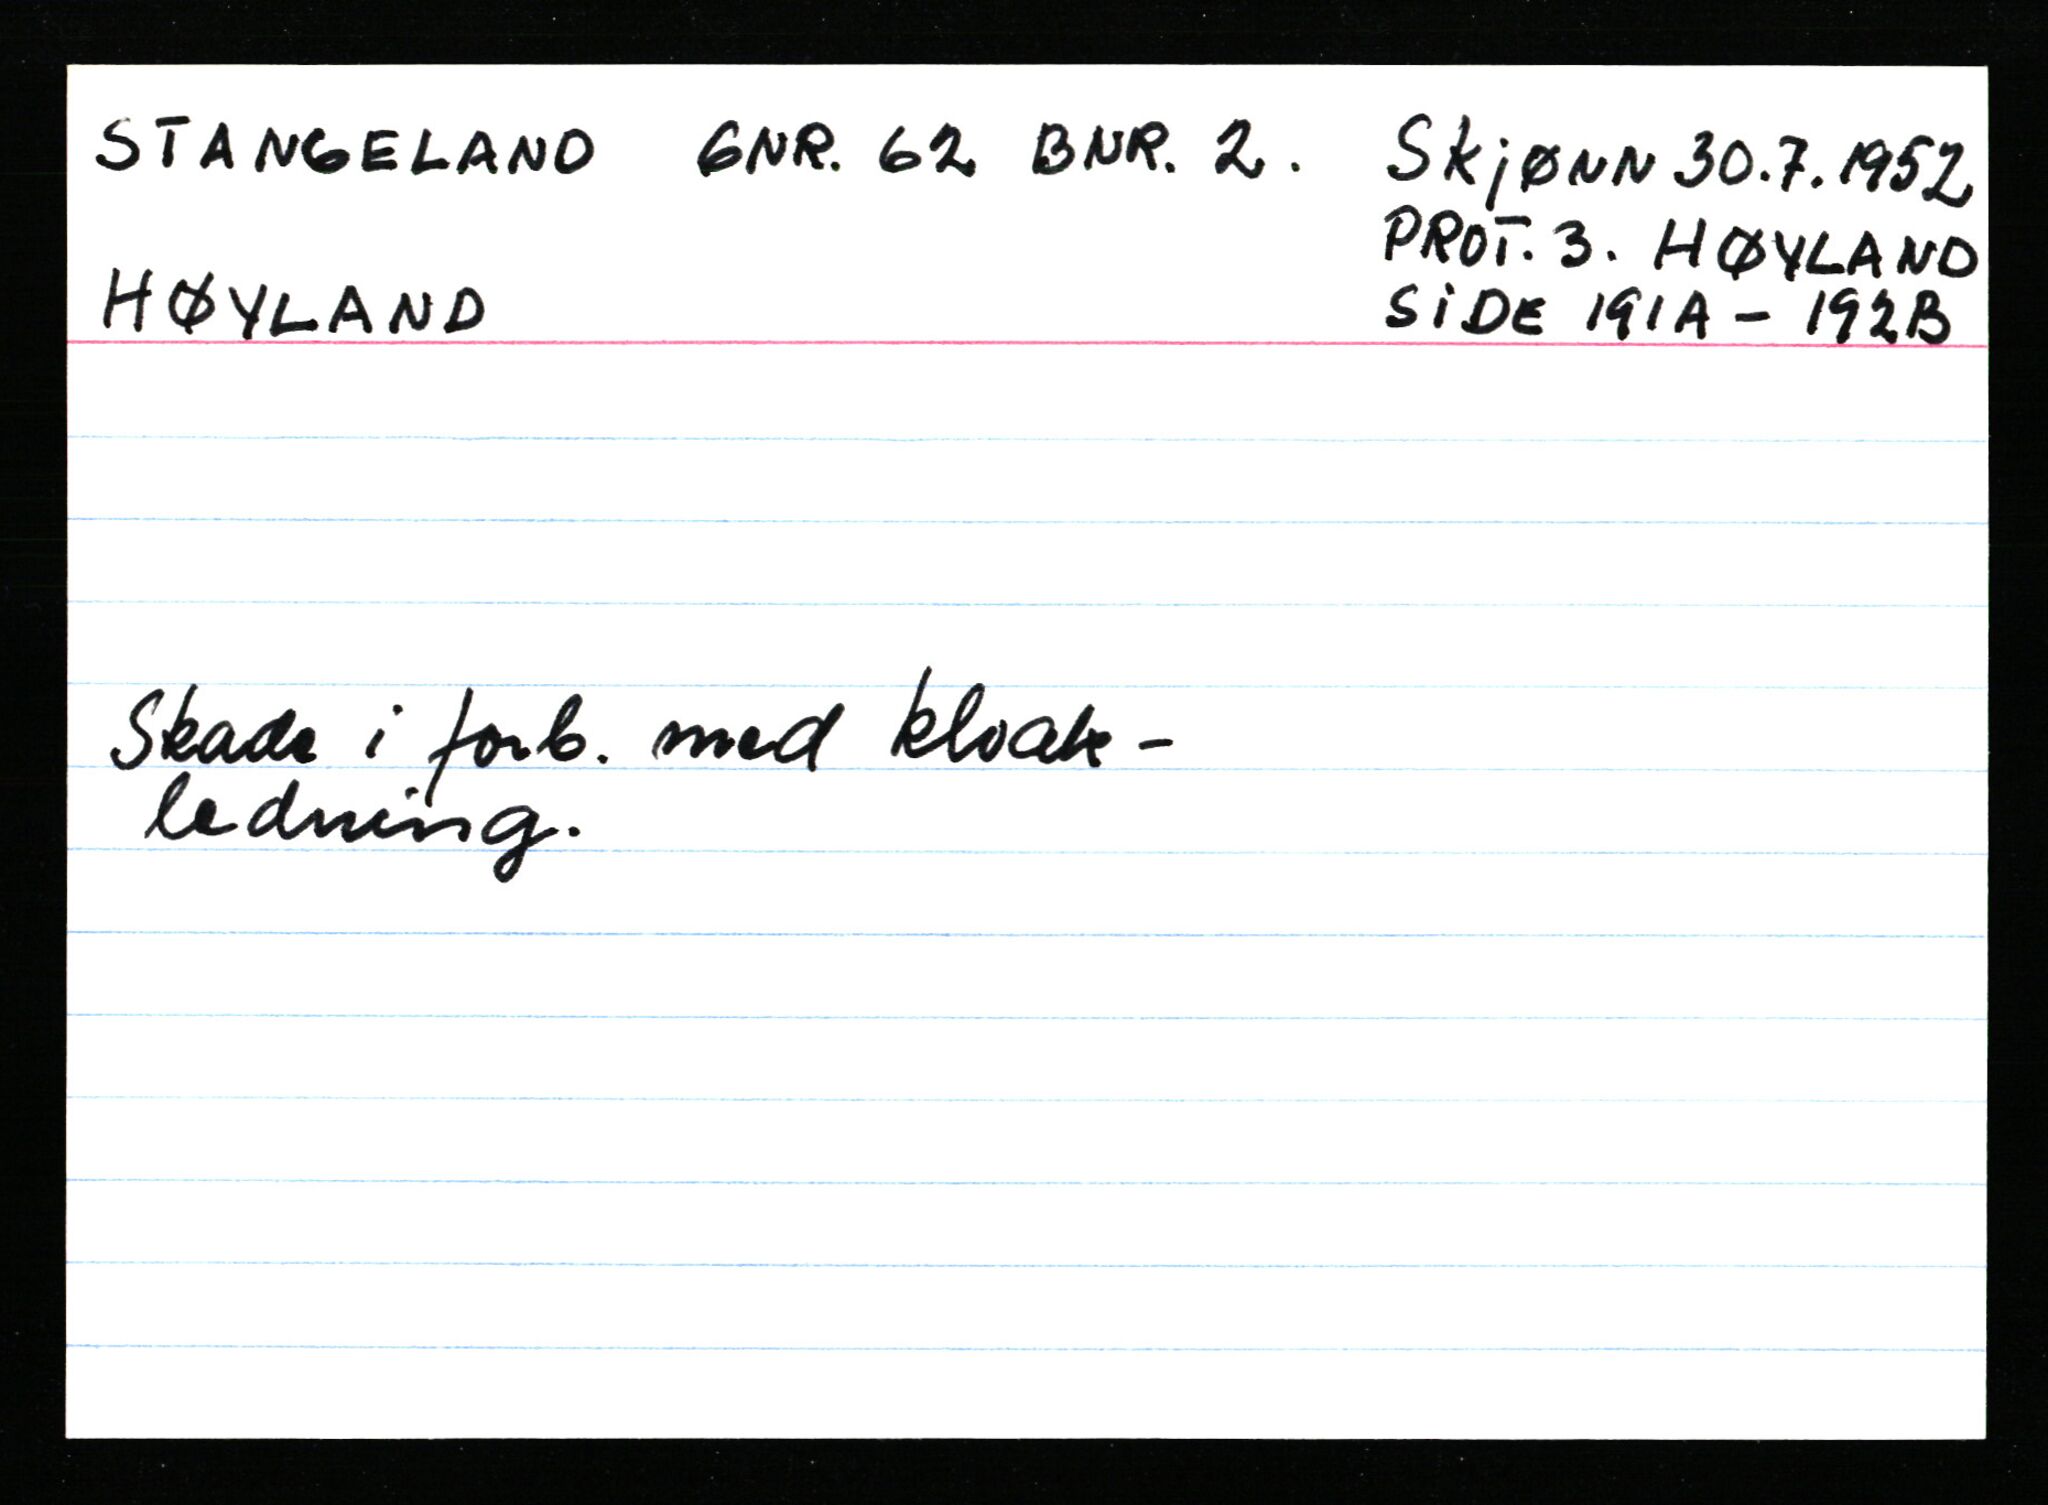 STANGELAND GNR. 62 BNR. 2. Skjønn 30.7.1952
PROT. 3. HØYLAND
HØYLAND
SIDE 191A - 192B
Skade i forb. med kloak-
ledning.